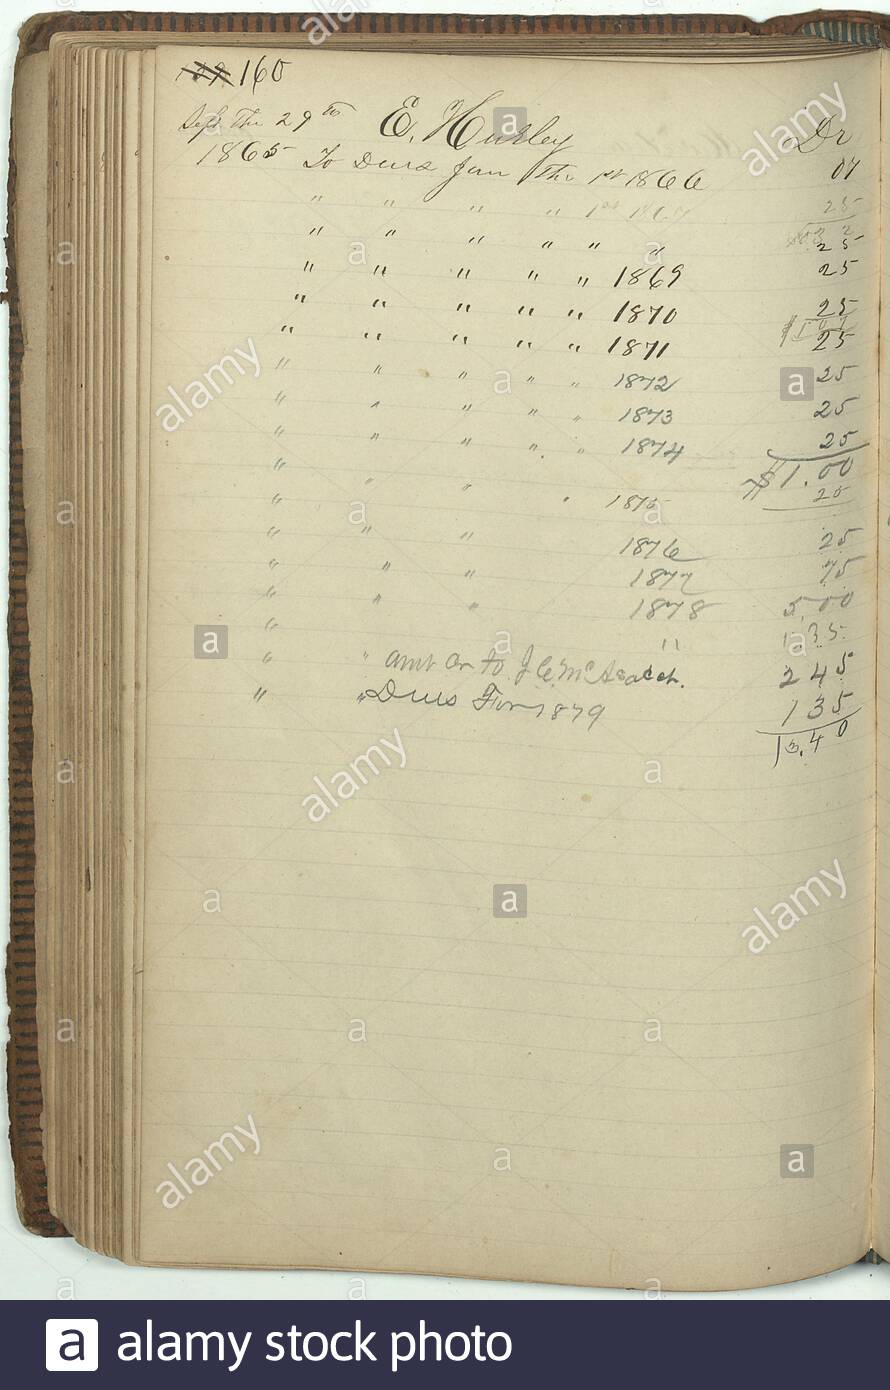 160
Sept the 29th E. Hurley Dr
1865 To Dues Jan the 1st 1866 07
" " " " 1st 25
" " " " " " 25
" " " " " 1869 25
" " " " " 1870 25
" " " " " 1871 25
" " " " " 1872 25
" " " " " 1873 25
" " " " " 1874 25
" $1.00
" " " " 1875 25
" " " 1876 25
" " " 1877 75
" " " 1878 5,00
" " 1.35
" " amt on to J. C. 245
" " Dues For 1879 135
13.40
alamy
alamy stock photo